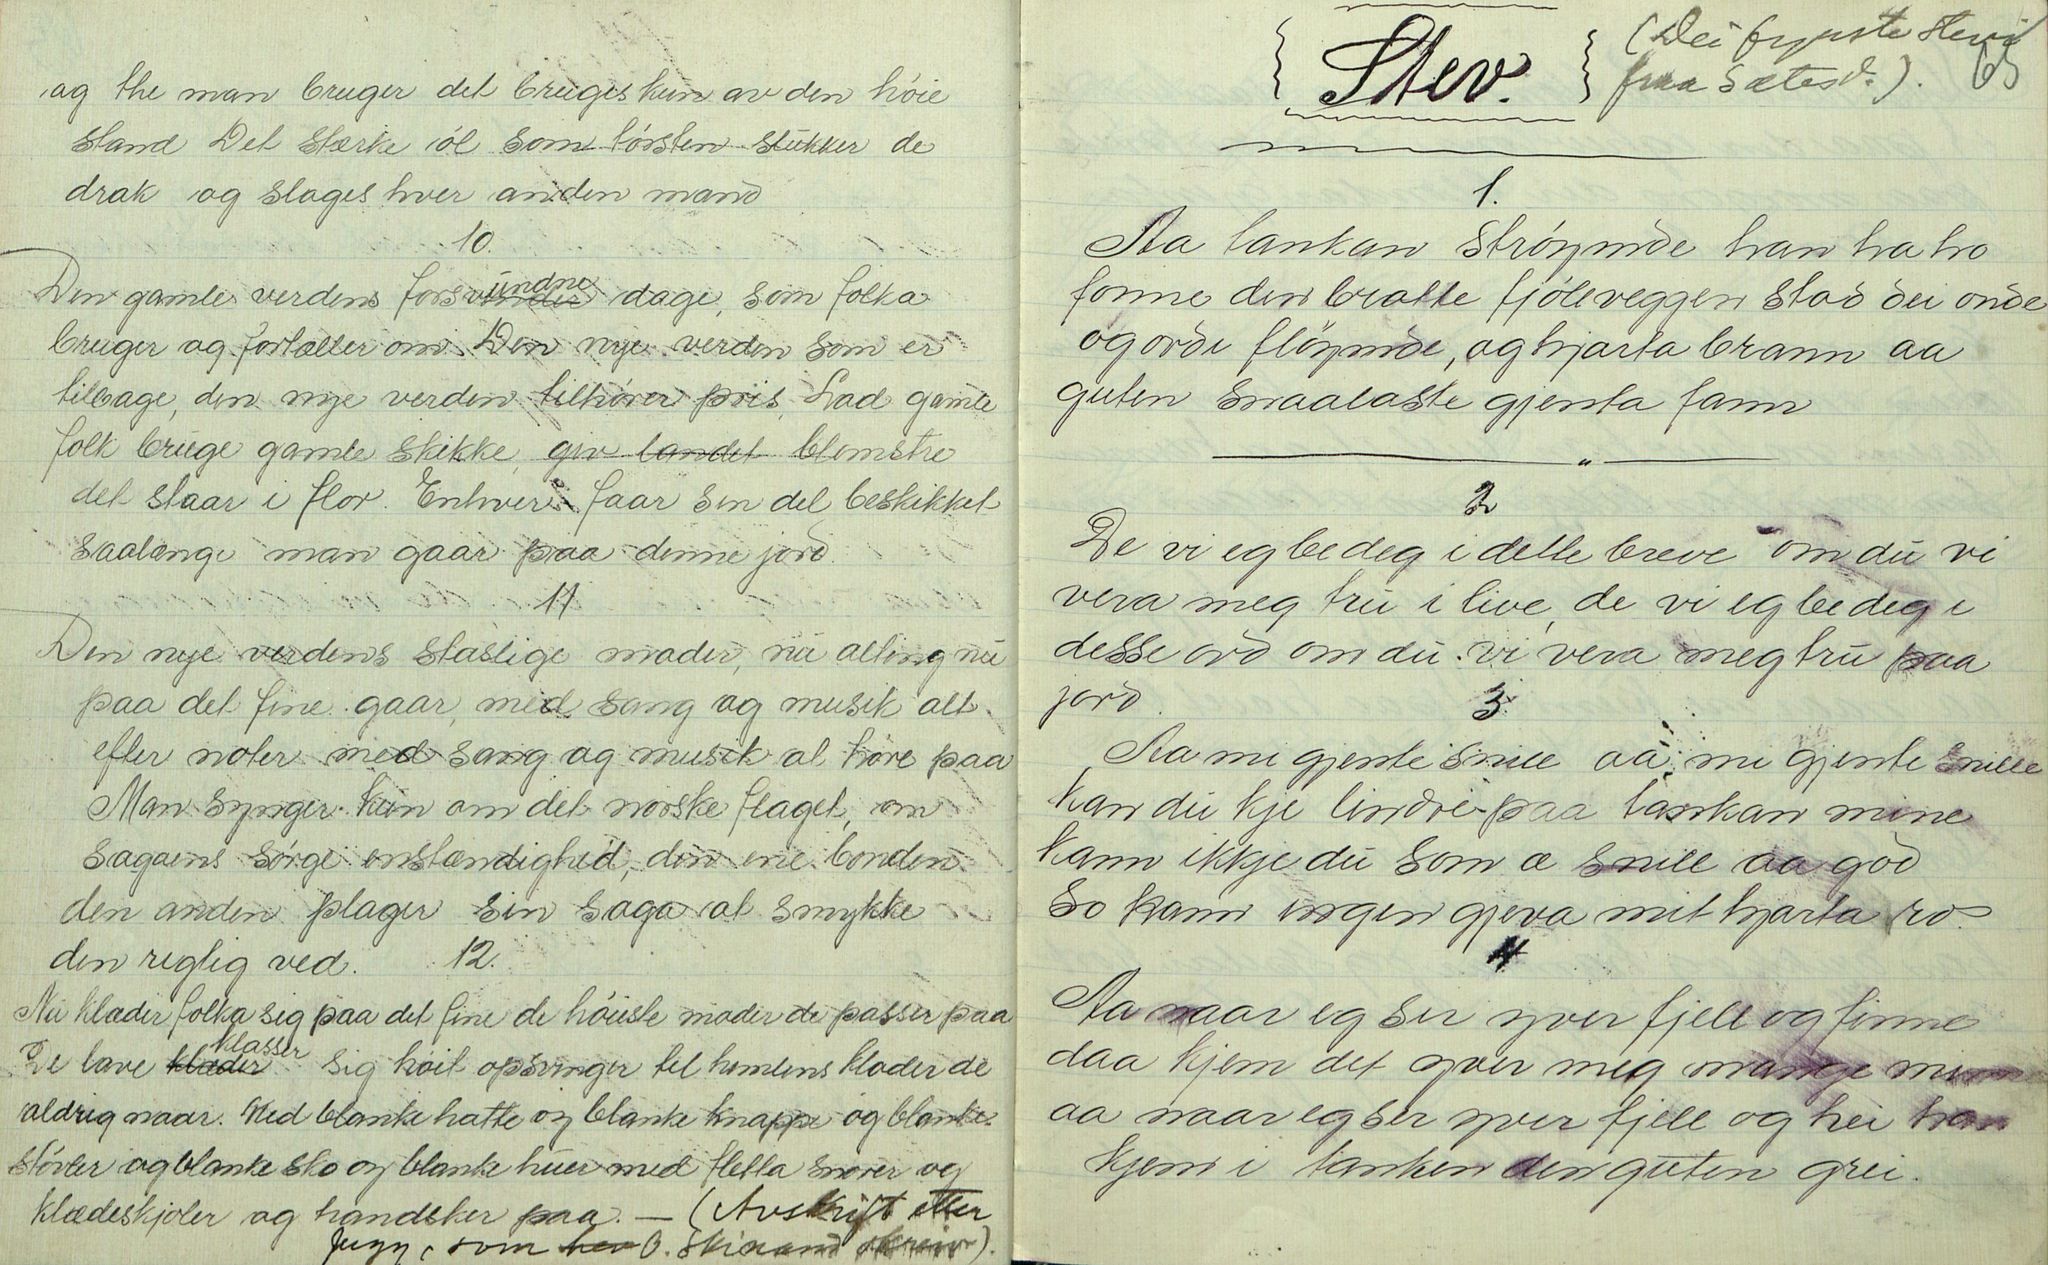 og the man bruger det bruges kun av den høie
stand Det stærke øl som tørsten slukker de
drak og slages hver anden mand
10.
Den gamle verdens forsvundne dage, som folka
bruger og fortæller om. Den nye verden som er
tilbage, den nye verden tilhører pris, Lad gamle
folk bruge gamle skikke, giv landet blomstre
det staar i flor. Enhver faar sin del beskikket
saalænge man gaar paa denne jord.
11
Den nye verdens staslige moder, nu alting nu
paa det fine gaar, med sang og musik alt
efter noter med sang og musik at høre paa
Man synger kun om det norske flaget, om
sagaens sørge omstændighed, den ene bonden
den anden plager sin saga at smykke
den riglig ved. 12.
Nu klæder folka sig paa det fine de høieste moder de passer paa
De lave klasser sig høit opsvinger til himlens kloder de
aldrig naar. Med blanke hatte og blanke knappe og blanke
støvler og blanke sko og blanke huer med fletta snorer og
klædeskjoler og handsker paa. — (Avskrift etter
som O. skreiv).
Stev. (Dei fyrste stevi
fraa Sætesd.). 65
1.
Aa tankan strøymde han ha ho
fonne den bratte fjøleveggen stod dei onde
og orde fløymde, og hjarta brann aa
guten snaalaste gjenta fann
2
De vi eg be deg i dette breve om du vi
vera meg tru i live, de vi eg be deg i
desse ord om du vi vera meg tru paa
jord.
3.
Aa mi gjente snill aa mi gjente snille
kan du kje lindre paa tankan mine
kann ikkje du som æ snill aa god
So kann ingen gjeva mit hjarta ro.
4
Aa naar eg ser yver fjell og finne
daa kjem det yver meg mange minne
aa naar eg ser yver fjell og hei han
kjem i tanken den guten grei.